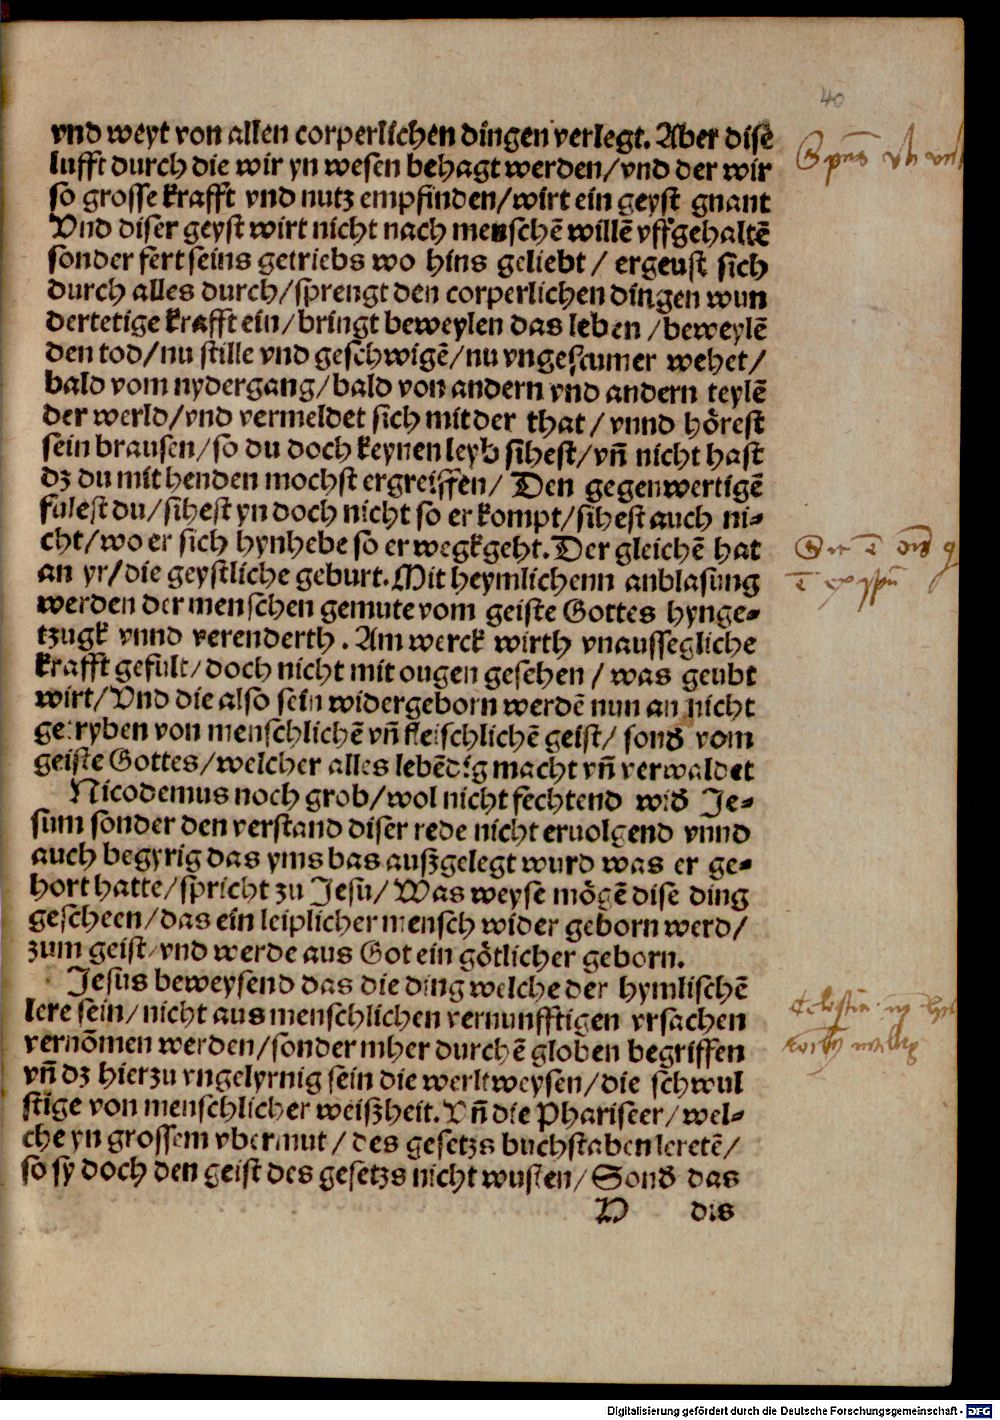 40
vnd weyt von allen corperlichen dingen verlegt. Aber dise
lufft durch die wir yn wesen behagt werden/vnd der wir
so grosse krafft vnd nutz empfinden/wirt ein geyst gnant
Vnd diser geyst wirt nicht nach menschē willē vffgehaltē
sonder fert seins getriebs wo hins geliebt / ergeust sich
durch alles durch/sprengt den corperlichen dingen wun
dertetige krafft ein/bringt beweylen das leben /beweylē
den tod/nu stille vnd geschwigē/nu vngestumer wehet/
bald vom nydergang/bald von andern vnd andern teylē
der werld/vnd vermeldet sich mit der that / vnnd hörest
sein brausen/so du doch keynen leyb sihest/vñ nicht hast
dz du mit henden mochst ergreiffen/ Den gegenwertigē
fulest du/sihest yn doch nicht so er kompt/sihest auch ni-
cht/wo er sich hynhebe so er wegkgeht. Der gleichē hat
an yr/die geystliche geburt. Mit heymlichenn anblasung
werden der menschen gemute vom geiste Gottes hynge-
tzugk vnnd verenderth . Am werck wirth vnaussegliche
krafft gefult/doch nicht mit ougen gesehen / was geubt
wirt/Vnd die also sein widergeborn werdē nun an nicht
getryben von menschlichē vñ fleischlichē geist/ sond' vom
geiste Gottes/welcher alles lebēdig macht vñ verwaldet
Nicodemus noch grob/wol nicht fechtend wid' Je-
sum sonder den verstand diser rede nicht eruolgend vnnd
auch begyrig das yms bas außgelegt wurd was er ge-
hort hatte/spricht zu Jesu/ Was weyse mögē dise ding
gescheen/das ein leiplicher mensch wider geborn werd/
zum geist/vnd werde aus Got ein götlicher geborn.
Jesus beweysend das die ding welche der hymlischē
lere sein/nicht aus menschlichen vernunfftigen vrsachen
vernōmen werden/sonder mher durchē globen begriffen
vñ dz hierzu vngelyrnig sein die werltweysen/die schwul
stige von menschlicher weißheit. Vñ die Phariseer/wel-
che yn grossem vbermut / des gesetzs buchstaben leretē/
so sy doch den geist des gesetzs nicht wusten/ Sond' das
D dis
Digitalisierung gefördert durch die Deutsche Forschungsgemeinschaft - DFG